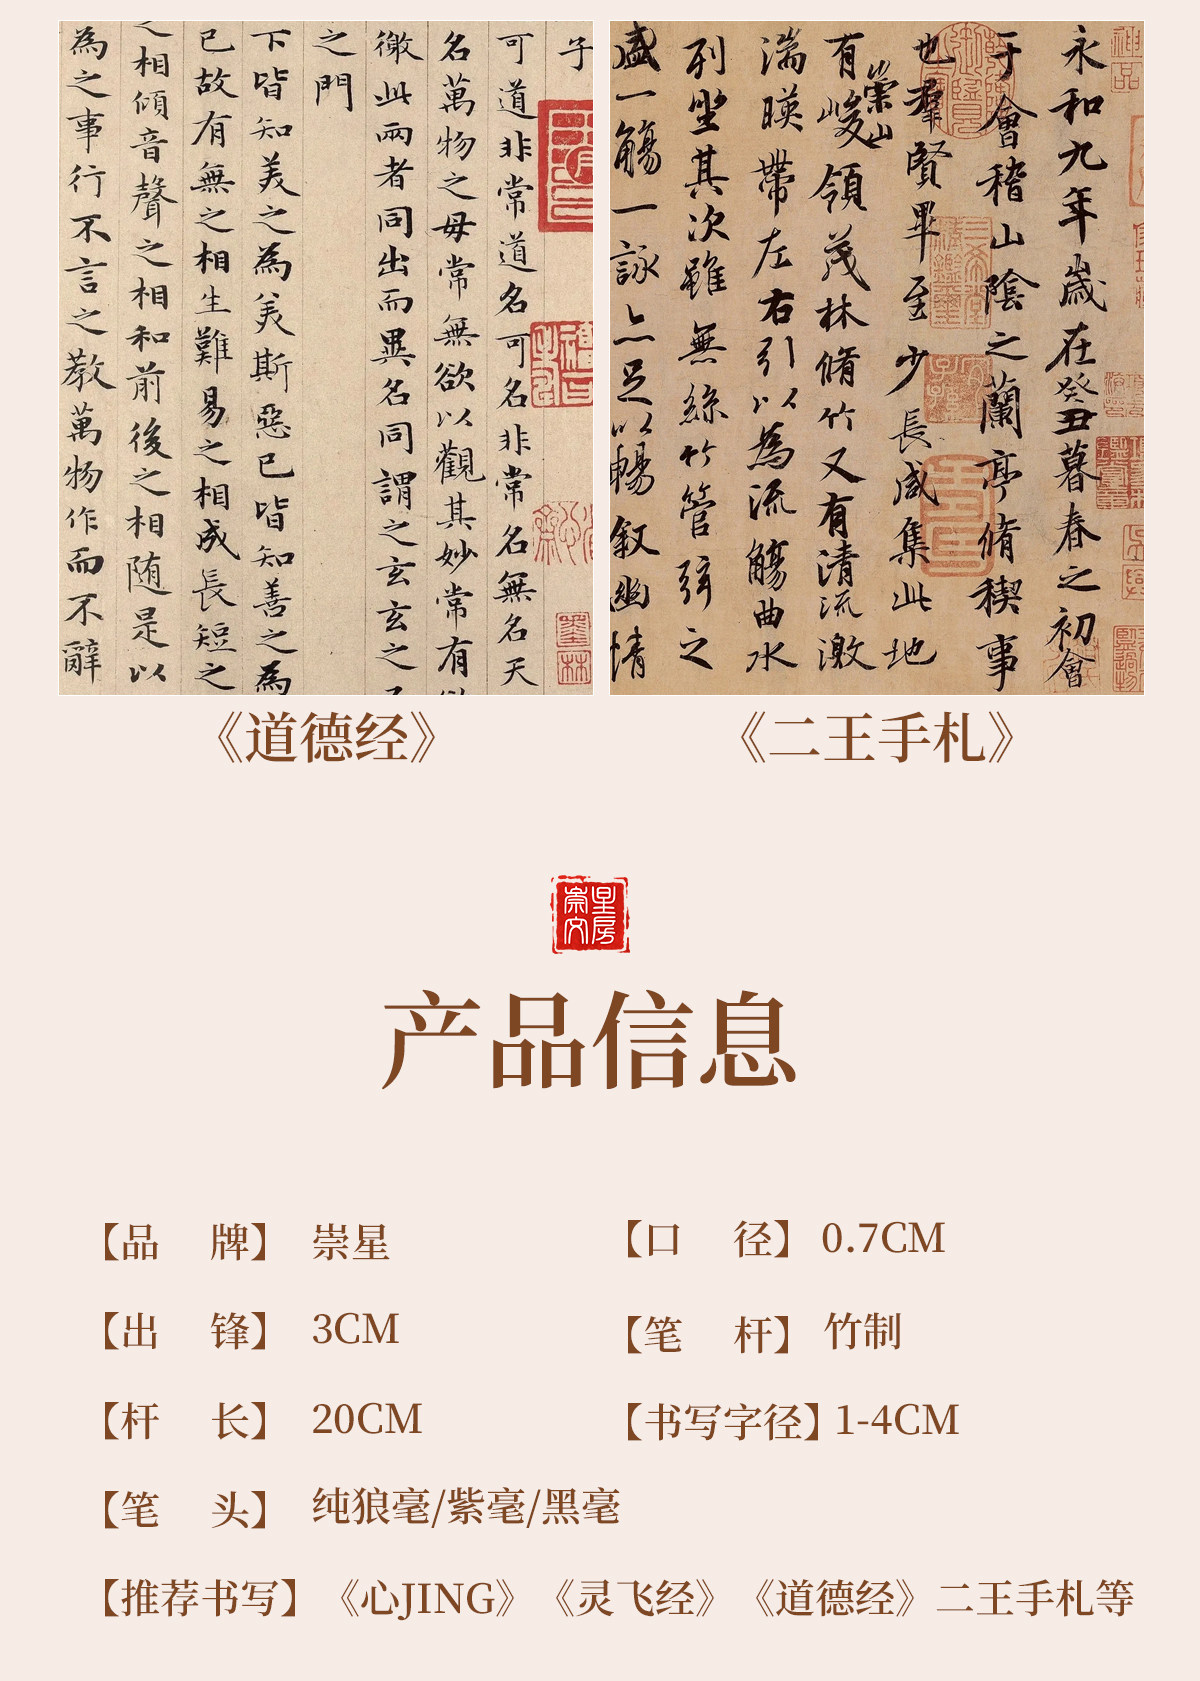 子
可道非常道名可名非常名無名天
名萬物之母常無欲以觀其妙常有
徼此兩者同出而異名同謂之玄玄之
之門
下皆知美之為美斯惡已皆知善之為
已故有無之相生難易之相成長短之
之相傾音聲之相和前後之相随是以
為之事行不言之教萬物作而不辭
永和九年歲在癸丑暮春之初會
于會稽山陰之蘭亭脩稧事
也羣賢畢至少長咸集此地
有崇山峻領茂林脩竹又有清流激
湍暎帶左右引以為流觴曲水
列坐其次雖無絲竹管弦之
盛一觴一詠亦足以暢叙幽情
《道德经》
《二王手札》
崇星文房
产品信息
【品 牌】 崇星
【口 径】 0.7CM
【出 锋】 3CM
【笔 杆】 竹制
【杆 长】 20CM
【书写字径】 1-4CM
【笔 头】 纯狼毫/紫毫/黑毫
【推荐书写】 《心JING》《灵飞经》《道德经》二王手札等